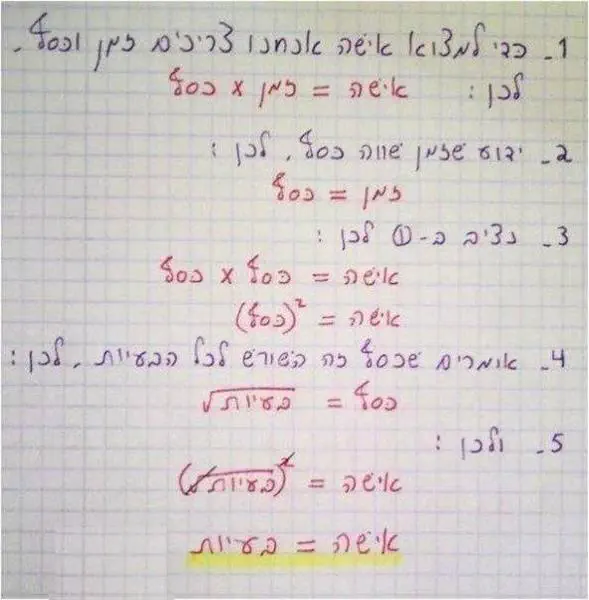 1- כדי למצוא אישה אנחנו צריכים זמן וכסף.
לכן: אישה = זמן x כסף
2- ידוע שזמן שווה כסף. לכן:
זמן = כסף
3- נציב ב-① לכן:
אישה = כסף x כסף
אישה = (כסף)²
4- אומרים שכסף זה השורש לכל הבעיות. לכן:
כסף = √בעיות
5- ולכן:
אישה = (√בעיות)²
אישה = בעיות